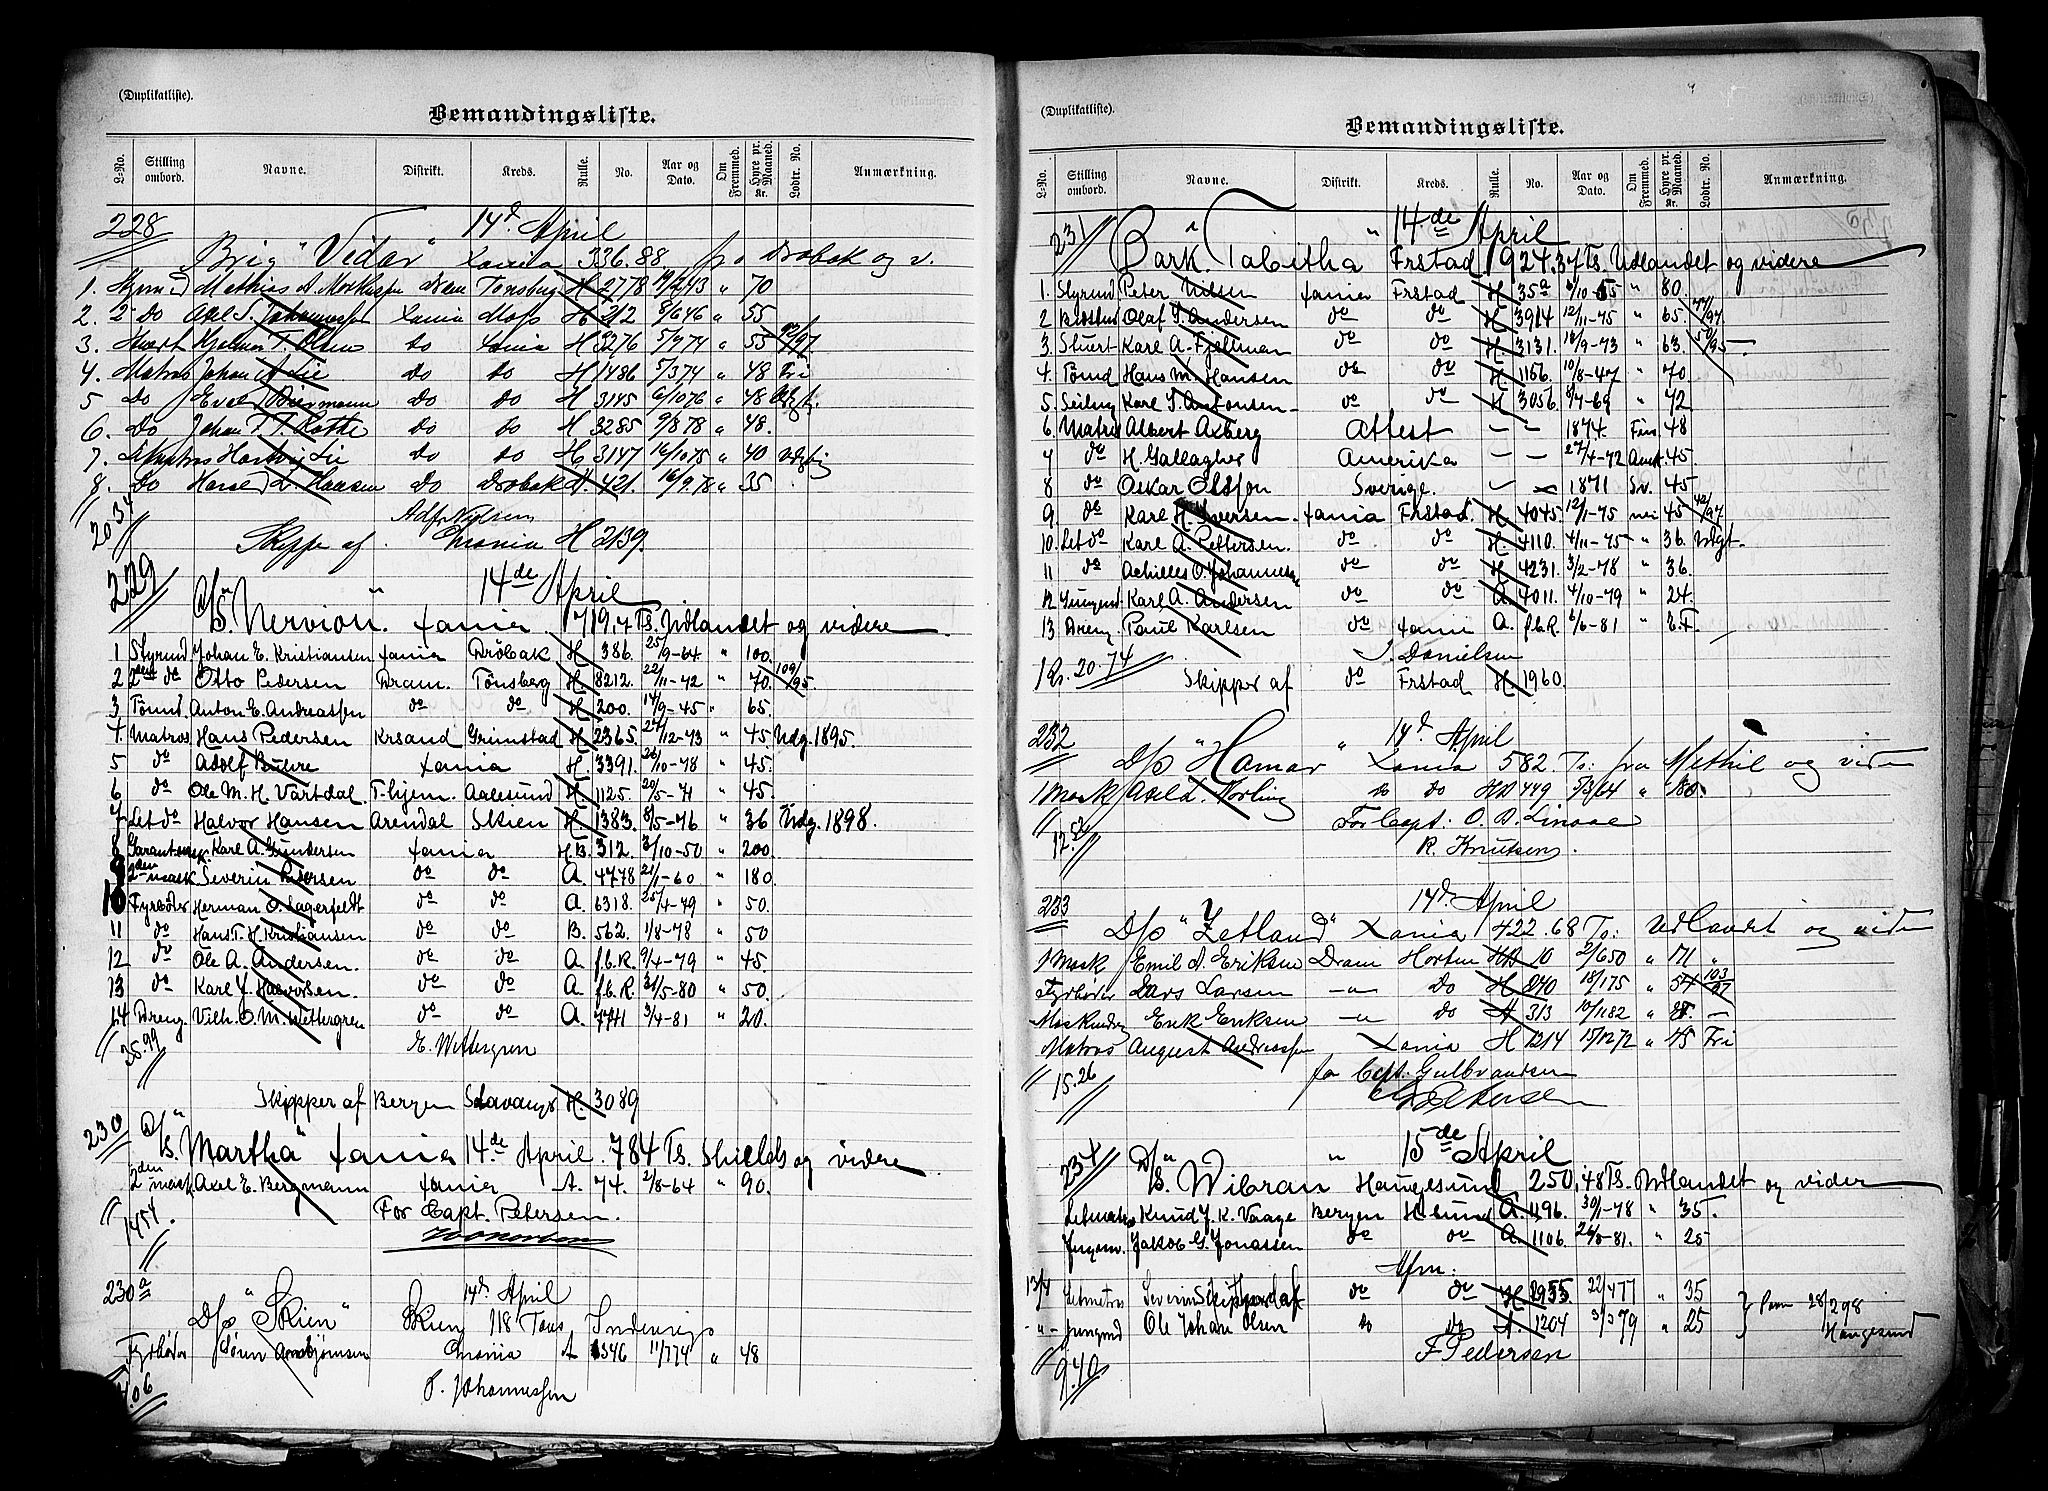 (Duplikatliste).
Bemandingsliste.
L-No. Stilling ombord. Navne. Distrikt. Kreds. Rulle. No. Aar og Dato. Om Fremmed. Hyre pr. Maaned. Kr. Lodtr. No. Anmærkning.
228 14d April
Brig "Vidar" Xania 336.88 fra Drobak og v.
1. Mathias A. Dram Tønsberg H 2778 " 70
2. 2 do Axel J. Johannessen Xania Moss H 212 9/6 46 " 55
3. Hjalmar T. Olsen do Xania H 3276 5/7 74 " 55
4. Matros Johan A Lie do do H 1486 5/3 74 " 48 Fri
5 Do Biermann do do H 3145 6/10 76 " 48
6. Do Johan T. T. Rothe do do H 3285 9/8 78 " 48.
7. Letmatros Hartvig Lie do do H 3147 16/10 75 " 40 Udygtig
8. Do L. Hansen Do Drobak A. 421. 16/9.78 " 35
20 34
Adf. Nylsen
Skipper af Chrania H 2139.
229 14de April
D/S. "Nervion" Xania 719,4 Ts. Udlandet og videre
1 Styrmd Johan E. Kristiansen Xania Drøbak H 386. 25/9-64 " 100.
2 2den do Otto Pedersen Dram. Tønsberg H 8212. 22/11-42 " 70. 109/95.
3 Tømd. Anton E. Andreassen do do H 200. 14/9-45 " 65.
4 Matros Hans Pedersen Krsand Grimstad H 2365. 27/12-73 " 45. Udg. 1895.
5 do Adolf Buhre Xania H. 3391. 26/10-78 " 45.
6 do Ole M. H. Vartdal. T-hjem. Aalesund H 1125. 20/5-71 " 45.
7 Let do Halvor Hansen Arendal Skien H. 1383. 8/5-76 " 36 Udg. 1898.
8 Garantimask. Karl A. Gundersen Xania H.B. 312. 31/10-50 " 200.
9 2den mask Severin Pedersen do do A. 4778 21/1-60 " 180.
10 Fyrbøder Herman O. Lagerfeldt do do A. 6318. 25/4-79 " 50.
11 do Hans T. H. Kristiansen do do B. 562. 1/8-78 " 50
12 do Ole A. Andersen. do do A. f.b.R. 9/4-79 " 45.
13 do Karl J. Halvorsen. do do A. f.b.R. 31/5-80 " 50.
14 Dreng. Vilh. O. M. Wettergren do do A. 7741 3/4-81 " 20.
25.99
E. Wettergren
Skipper af Bergen Stavanger H. 3089
230 D/S. "Martha" Xania 14de April. 784 Ts. Shields og videre
2den mask Axel E. Bergmann Xania A. 74. 2/8-64 " 90.
14 54.
For Capt. Petersen.
230a 14d. April
D/S "Skien" Skien 118 Tons
Fyrbøder Søren Arnbjørnsen Chrania A 1346 11/7 74 " 48
4.06
T. Johannessen
(Duplikatliste).
Bemandingsliste.
L-No. Stilling ombord. Navne. Distrikt. Kreds. Rulle. No. Aar og Dato. Om Fremmed. Hyre pr. Maaned. Kr. Lodtr. No. Anmærkning.
231 " 14de April
Bark. Tabitha Frstad 924.37 Ts. Udlandet og videre
1. Styrmd Peter Nilsen Xania Frstad H. 35a 6/10-55 " 80.
2 Bødstmd Olaf S. Andersen do do H. 3914 12/11-75 " 65. 77/97.
3. Stuert Karl A. Fjellman do do H. 3131. 16/9-73 " 63. 57/95.
4. Tømd Hans M. Hansen do do H. 1156. 10/8-47 " 70
5. Seilmg Karl S. Antonsen do do H. 3056. 9/4-69 " 42
6. Matros Albert Axberg Attest — — 1874. Fin. 48
7 do H. Gallagher Amerika — — 27/4-72 Amk. 45.
8 do Oskar Olsson Sverige. — — 1871 Sv. 45
9. do Karl H. Iversen Xania Frstad. H. 4045. 12/1-75 nei 45 42/97
10. Let do Karl A. Pettersen. do do H. 4110. 4/11-75 " 36. Udgt.
11 do Achilles O. Johannesen do do H. 4231. 3/2-78 " 36.
12 Jungmd Karl A. Andersen do do A. 4011. 4/10-79 " 24.
13 Dreng Paul Karlsen do Xania A. f.b.R. 6/6-81 " 2.F.
J. Danielsen
Kr. 20.74
Skipper af do Frstad H. 1960.
232 " 14d April
D/S "Hamar" Xania 582. Ts: fra Methil og vider
1 Mask Axel L. Norling do do HB 449 5/3/64 " 180.
12.52
For Capt: O. A. Linaae
R. Knutsen.
233 14d. April
D/S "Zetland" Xania 422.68 Ts: Udlandet og vider
1 Mask Emil A. Eriksen Dram Horten HB 10 2/6 50 " 71 "
Fyrbøder Lars Larsen — " — Do H. 270 18/1 75 " 54 103/97
Enk Eriksen — " — Do A 313 10/11 82 " —
Matros August Andreassen Xania H 1214 15/12 72 " 45 Fri
15.26
for Capt. Gulbrandsen
234 " 15de April
D/S. Wibran Haugesund 250,48 Ts. Udlandet og vider
Letmatros Knud J. K. Vaage Bergen H-sund A. 1196. 30/1-78 " 35.
Jakob G. Jonassen do do A. 1106. -81. " 25
Afm:
13/4 Letmatros Severin do do H 2955. 22/4 77 " 35
- " - Jungmd Ole Johan Olsen do do A. 1204 3/3 79 " 25 28/2 98 Haugesund
9.40.
F Pedersen